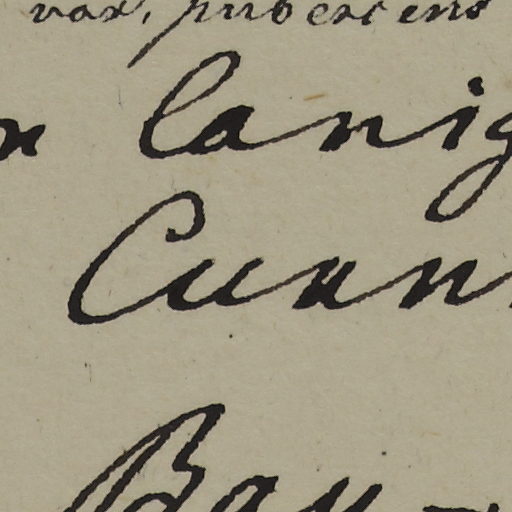 var. pubescens
n lanig
Cunn
Bay -